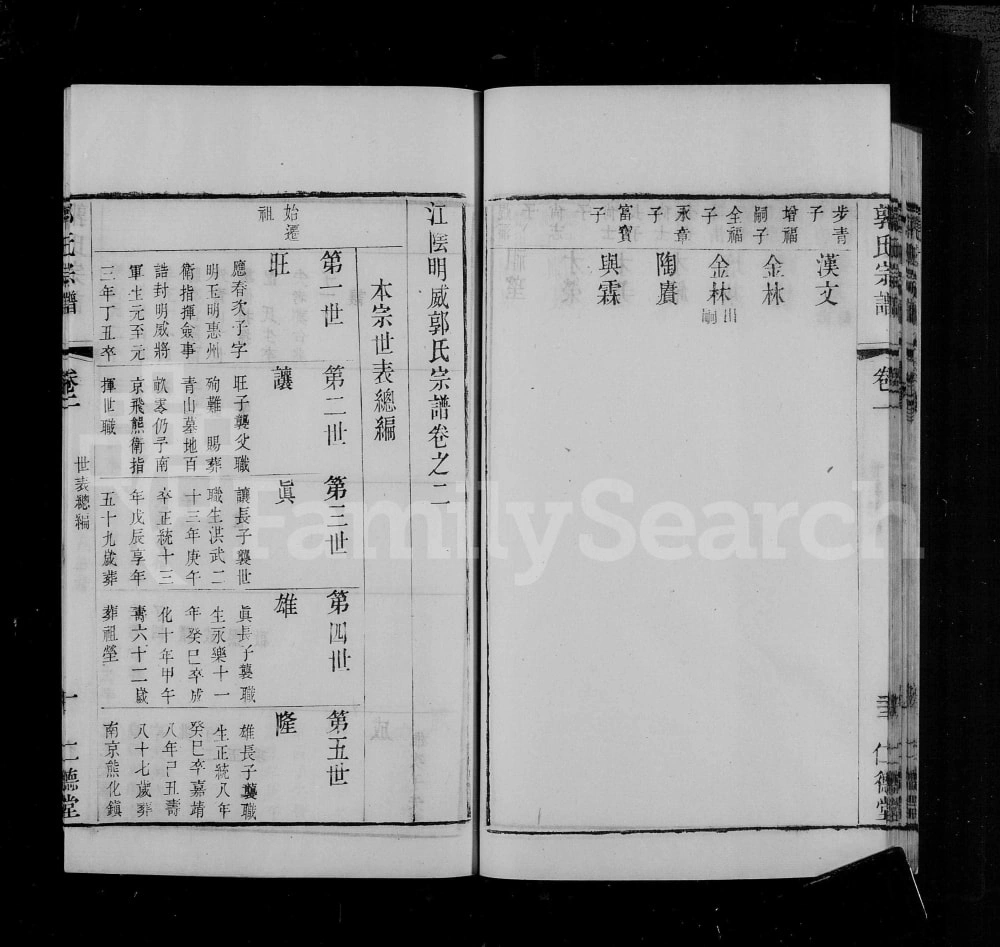 郭氏宗譜
卷一
仁德堂
步青子
漢文
增福嗣子
金林
全福子
金林出嗣
永章子
陶賡
富寶子
與霖
江陰明威郭氏宗譜卷之二
本宗世表總編
始遷祖
第一世
旺
應春次子字
明玉明惠州
衛指揮僉事
誥封明威將
軍生元至元
三年丁丑卒
第二世
讓
旺子襲父職
殉難 賜葬
青山墓地百
畝零仍予南
京飛熊衛指
揮世職
第三世
眞
讓長子襲世
職生洪武二
十三年庚午
卒正統十三
年戊辰享年
五十九歲葬
第四世
雄
眞長子襲職
生永樂十一
年癸巳卒成
化十年甲午
壽六十二歲
葬祖塋
第五世
隆
雄長子襲職
生正統八年
癸巳卒嘉靖
八年己丑壽
八十七歲葬
南京熊化鎭
郭氏宗譜
卷二
世表總編
十
仁德堂
FamilySearch